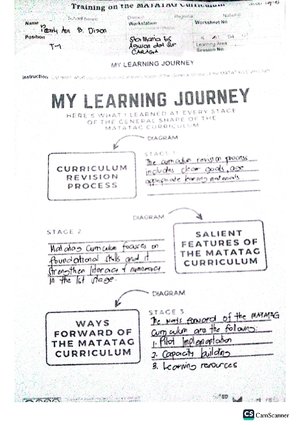 Training on the MATATAG Curriculum
Name
Position
T-1
Workstation
Sta. Maria
Agusan del Sur
CARAGA
Worksheet No.
Learning Area
Session No.
MY LEARNING JOURNEY
Instruction
MY LEARNING JOURNEY
HERE'S WHAT I LEARNED AT EVERY STAGE
OF THE GENERAL SHAPE OF THE
MATATAG CURRICULUM
DIAGRAM
CURRICULUM
REVISION
PROCESS
STAGE 1
The curriculum revision process
includes clear goals, age
appropriate learning materials
DIAGRAM
STAGE 2
Matatag Curriculum focuses on
foundational skills and it
strengthen literacy & numeracy
in the 1st stage.
SALIENT
FEATURES OF
THE MATATAG
CURRICULUM
DIAGRAM
WAYS
FORWARD OF
THE MATATAG
CURRICULUM
STAGE 3
The ways forward of the MATATAG
Curriculum are the following:
1. Pilot Implementation
2. Capacity building
3. Learning resources
CS CamScanner